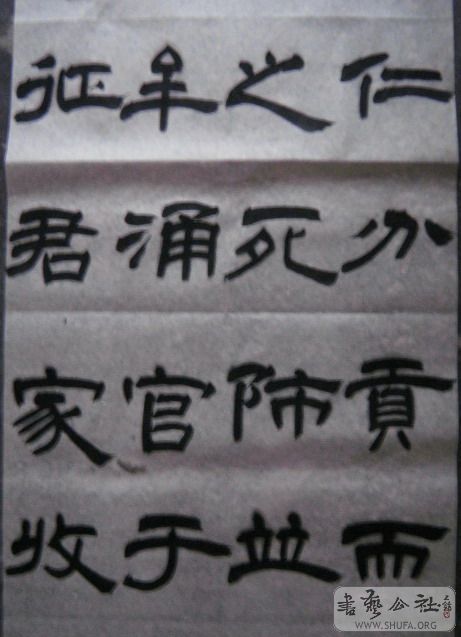 仁分貢而
之死並
涌官于
征君家收
書藝公社
WWW.SHUFA.ORG